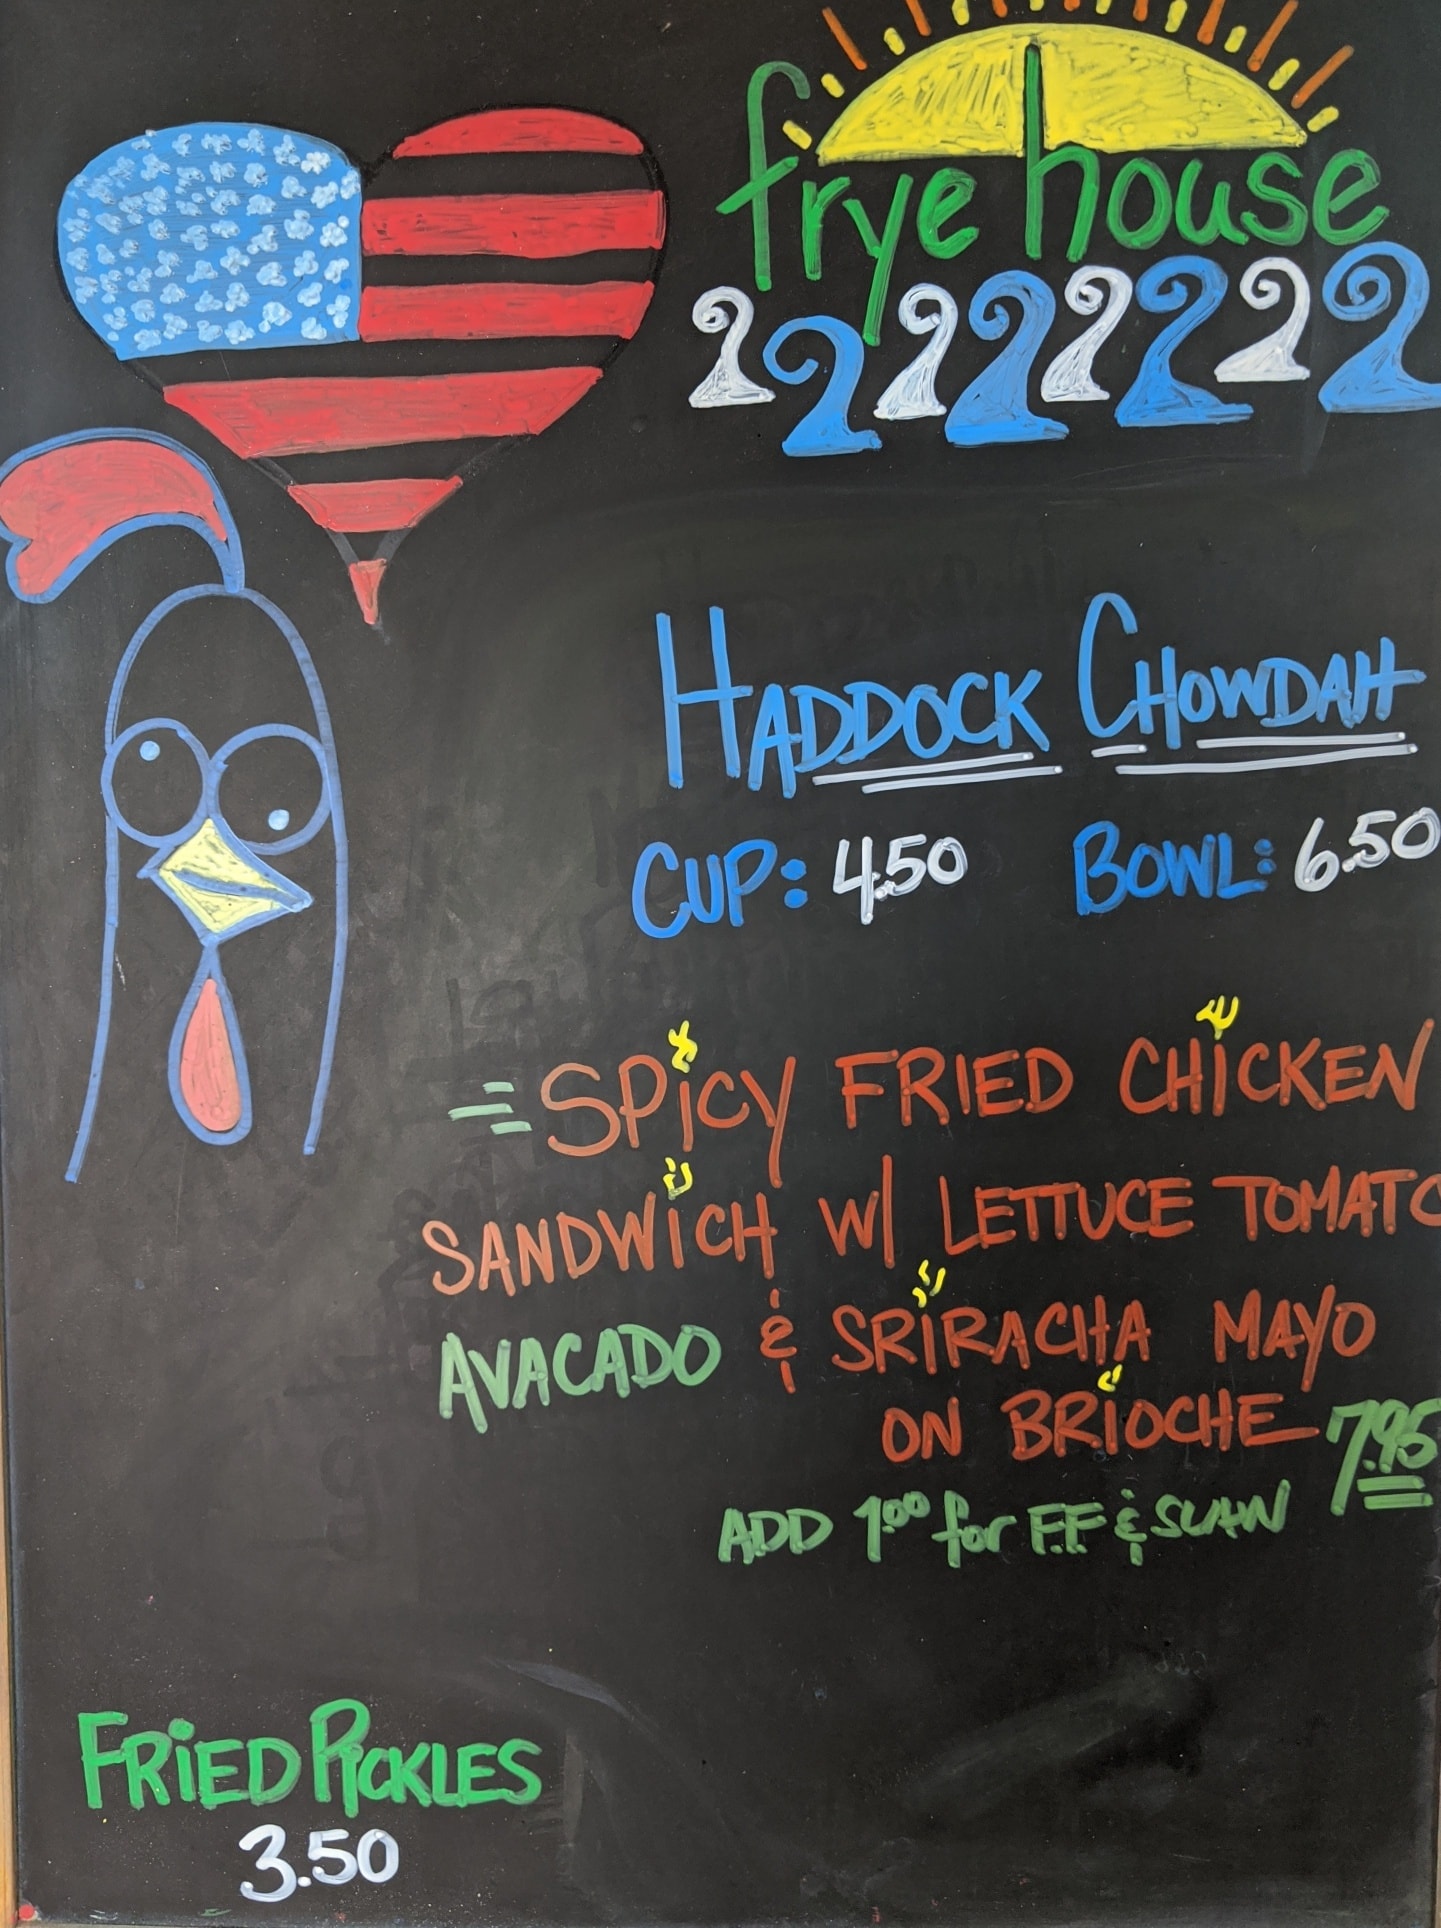 frye house
22222222
HADDOCK CHOWDAH
CUP: 4.50 BOWL: 6.50
SPiCY FRIED CHiCKEN
SANDWiCH W/ LETTUCE TOMATO
AVACADO & SRiRACHA MAYO
ON BRiOCHE 7.95
ADD 1.00 for F.F & SLAW
FRiED PICKLES
3.50